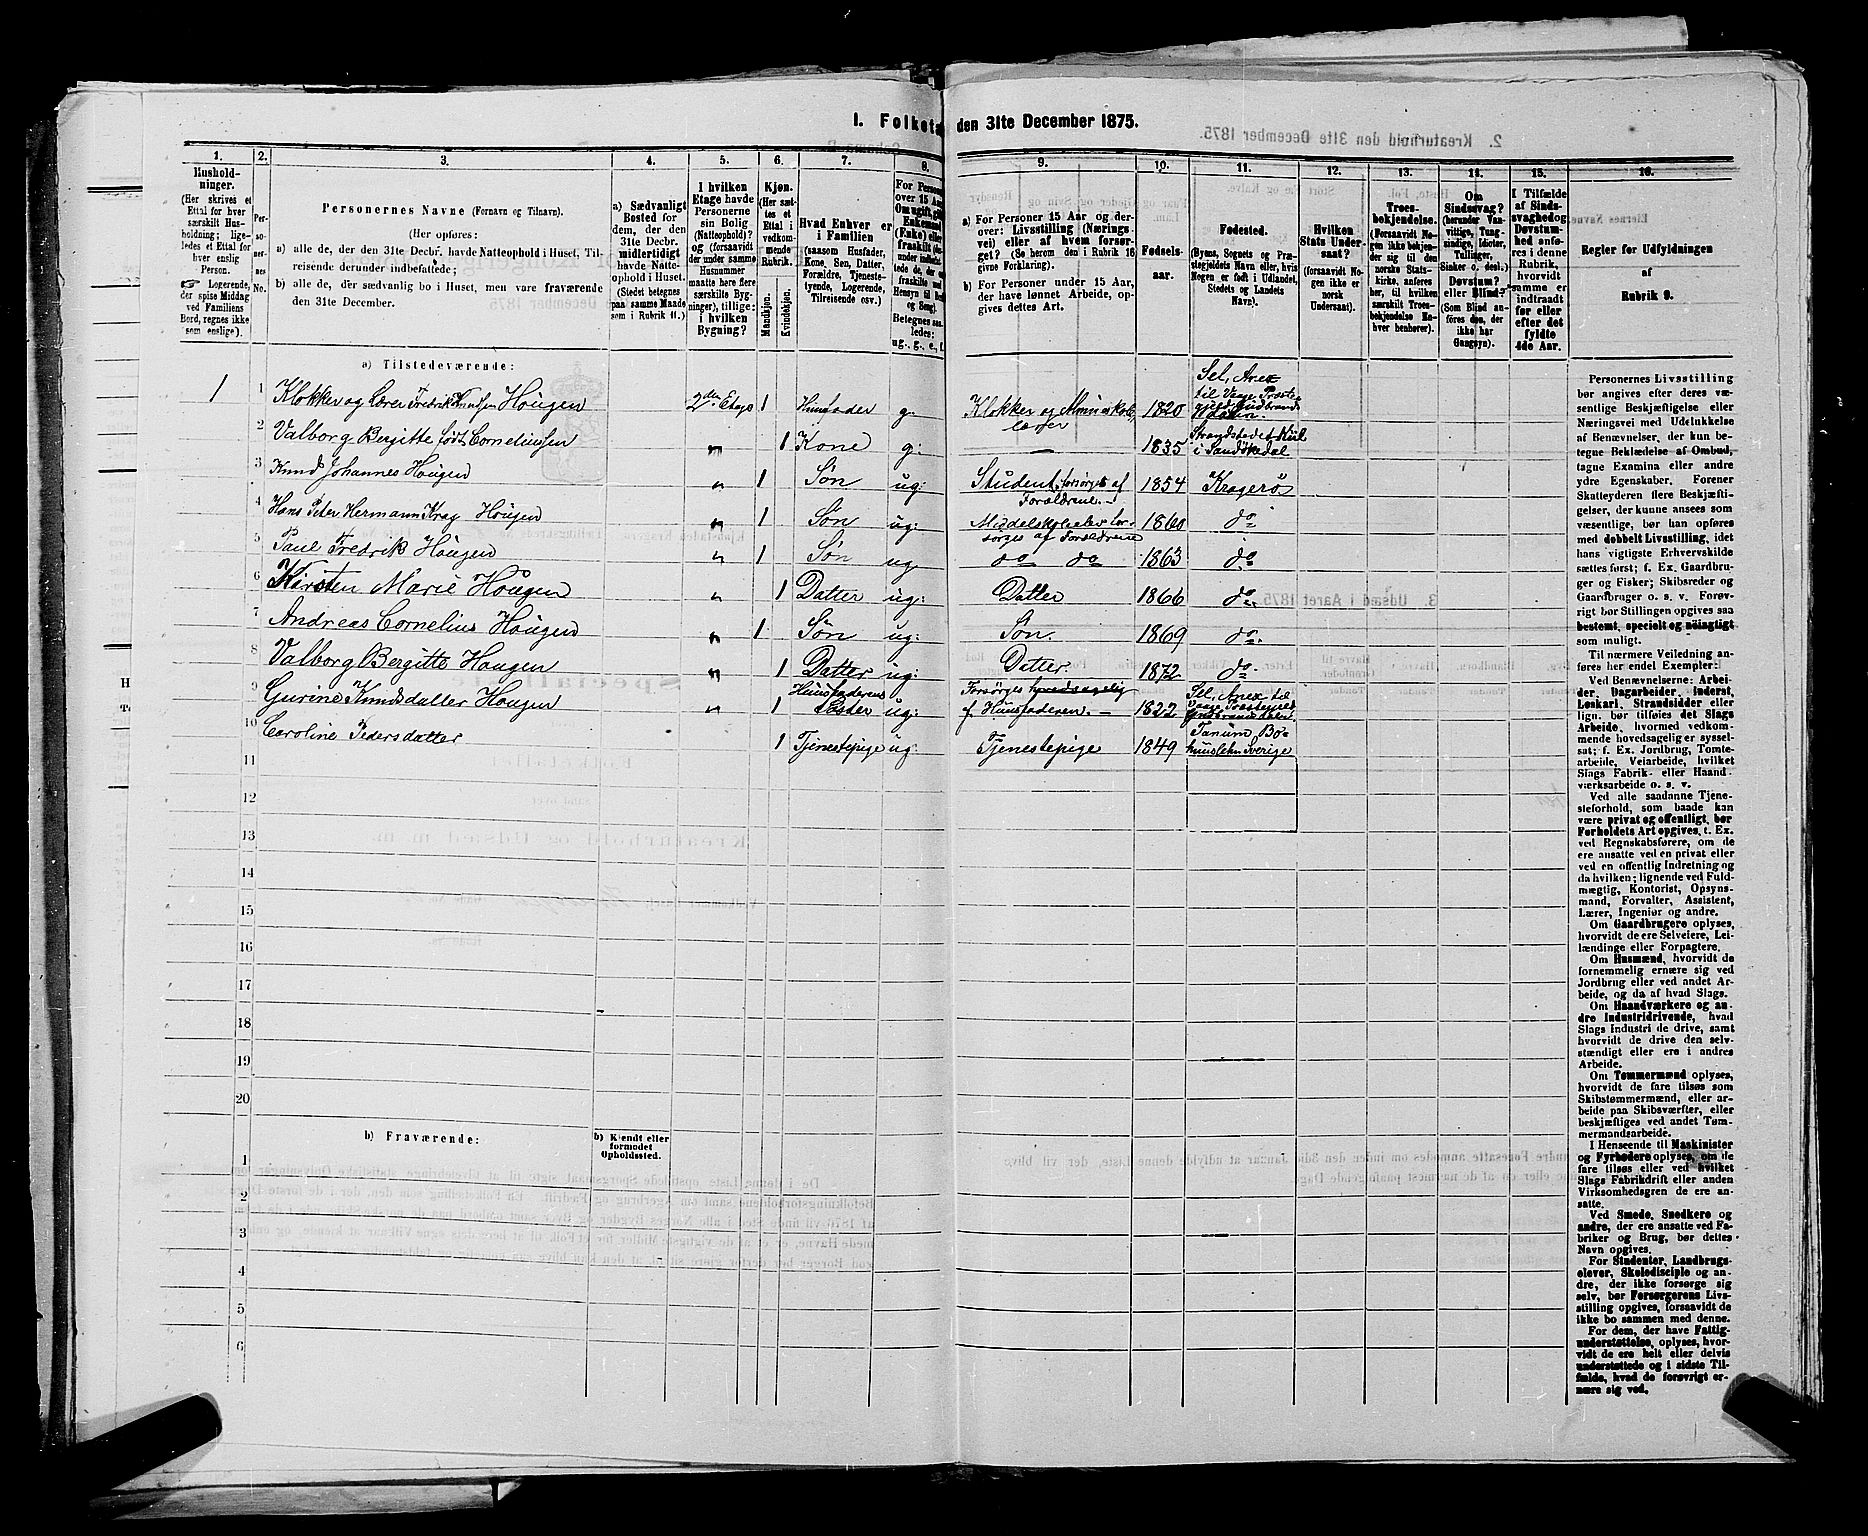 I. Folketæ den 31te December 1875.
1. 2. 3. 4. 5. 6. 7. 8. 9. 10. 11. 12. 13. 14. 15. 16.
Hushold-
ninger.
(Her skrives et
Ettal for hver
særskilt Hus-
holdning; lige-
ledes et Ettal for
hver enslig
Person.
☞ Logerende,
der spise Middag
ved Familiens
Bord, regnes ikke
som enslige).
Per-
so-
ner-
nes
No.
Personernes Navne (Fornavn og Tilnavn).
(Her opføres:
a) alle de, der den 31te Decbr. havde Natteophold i Huset, Til-
reisende derunder indbefattede;
b) alle de, der sædvanlig bo i Huset, men vare fraværende
den 31te December.
a) Sædvanligt
Bosted for
dem, der den
31te Decbr.
midlertidigt
havde Natte-
ophold i Huset.
(Stedet betegnes
paa samme Maade
som i Rubrik 11.)
I hvilken
Etage havde
Personerne
sin Bolig
(Natteophold)?
og (forsaavidt
der under samme
Husnummer
maatte høre flere
særskilte Byg-
ninger), tillige:
i hvilken
Bygning?
Kjøn.
(Her sæt-
tes et
Ettal i
vedkom-
mende
Rubrik.
Mandkjøn.
Kvindekjøn.
Hvad Enhver er
i Familien
(saasom Husfader,
Kone, Søn, Datter,
Forældre, Tjeneste-
tyende, Logerende,
Tilreisende osv.)
For Person
over 15 Aar
Om ugift, gift
Enkemand
(Enke) eller
fraskilt
Betegnes saa-
ledes:
ug., g., e., f.
a) For Personer 15 Aar og der-
over: Livsstilling (Nærings-
vei) eller af hvem forsør-
get? (Se herom den i Rubrik 16
givne Forklaring).
b) For Personer under 15 Aar,
der have lønnet Arbeide, op-
gives dettes Art.
Fødsels-
aar.
Fødested.
(Byens, Sognets og Præ-
stegjeldets Navn eller, hvis
Nogen er født i Udlandet,
Stedets og Landets
Navn).
Hvilken
Stats Under-
saat?
(forsaavidt No-
gen ikke er
norsk
Undersaat).
Troes-
bekjendelse.
(Forsaavidt No-
gen ikke bekjen-
der sig til den
norske Stats-
kirke, anføres
her, til hvilken
særskilt Troes-
bekjendelse En-
hver henhører).
Om
Sindssvag?
(herunder Van-
vittige, Tung-
sindige, Idioter,
Tullinger,
Sinker o. desl.)
Døvstum?
eller Blind?
(Som Blind an-
føres den, der
ikke har
Gangsyn).
I Tilfælde
af Sinds-
svaghed og
Døvstum-
hed anfø-
res i denne
Rubrik,
hvorvidt
samme er
indtraadt
før eller
efter det
fyldte
4de Aar.
Regler for Udfyldningen
af
Rubrik 9.
a) Tilstedeværende:
1 1 Klokker og Lærer Fredrik Knudsen Hougen 2den Etage 1 Huusfader g: Klokker og Almueskole-
lærer 1820 Sel, Anex
til Vaage Præste-
gjeld Gudbrands-
dalen
2 Valborg Bergitte født Corneliussen " 1 Kone g: — 1835 Strandstedet Kiil
i Sandøkedal
3 Knud Johannes Hougen " 1 Søn ug: Student, forsørges af
Forældrene. — 1854 Kragerø
4 Hans Peter Hermann Krag Hougen " 1 Søn ug: Middelskoleelev for-
sørges af Forældrene 1860 do
5 Paul Fredrik Hougen " 1 Søn ug do do 1863 do
6 Kirsten Marie Hougen " 1 Datter ug: Datter 1866 do
7 Andreas Cornelius Hougen " 1 Søn ug: Søn. 1869 do.
8 Valborg Bergitte Hougen " 1 Datter ug: Datter. 1872 do
9 Gurine Knudsdatter Hougen " 1 Huusfaderens
Søster ug: Forsørges hovedsagelig
f. Huusfaderen. — 1822 Sel, Anex til
Vaage Præstegjeld
Gudbrandsdalen
10 Caroline Pedersdatter 1 Tjenestepige ug: Tjenestepige 1849 Tanum Bo-
huuslehn Sverige
11
12
13
14
15
16
17
18
19
20
b) Fraværende:
b) Kjendt eller
formodet
Opholdssted.
1
2
3
4
5
6
Personernes Livsstilling
bør angives efter deres væ-
sentlige Beskjæftigelse eller
Næringsvei med Udelukkelse
af Benævnelser, der kun be-
tegne Beklædelse af Ombud,
tagne Examina eller andre
ydre Egenskaber. Forener
Skatteyderen flere Beskjæfti-
gelser, der kunne ansees som
væsentlige, bør han opføres
med dobbelt Livsstilling, idet
hans vigtigste Erhvervskilde
sættes først; f. Ex. Gaardbru-
ger og Fisker; Skibsreder og
Gaardbruger o. s. v. Forøv-
rigt bør Stillingen opgives saa
bestemt, specielt og nøiagtigt
som muligt.
Til nærmere Veiledning an-
føres her endel Exempler:
Ved Benævnelserne: Arbei-
der, Dagarbeider, Inderst,
Løskarl, Strandsidder eller
lign. bør tilføies det Slags
Arbeide, hvormed vedkom-
mende hovedsagelig er syssel-
sat; f. Ex. Jordbrug, Tomte-
arbeide, Veiarbeide, hvilket
Slags Fabrik- eller Haand-
værksarbeide o. s. v.
Ved alle saadanne Tjene-
steforhold, som baade kan
være privat og offentligt, bør
Forholdets Art opgives, t. Ex.
ved Regnskabsførere, om de
ere ansatte ved en privat eller
ved en offentlig Indretning og
da hvilken; lignende ved Fuld-
mægtig, Kontorist, Opsyns-
mand, Forvalter, Assistent,
Lærer, Ingeniør og andre.
Om Gaardbrugere oplyses,
hvorvidt de ere Selveiere, Lei-
lændinge eller Forpagtere.
Om Husmænd, hvorvidt de
fornemmelig ernære sig ved
Jordbrug eller ved andet Ar-
beide, og da af hvad Slags.
Om Haandværkere og an-
dre Industridrivende, hvad
Slags Industri de drive, samt
hvorvidt de drive den selv-
stændigt eller ere i andres
Arbeide.
Om Tømmermænd oplyses,
hvorvidt de fare tilsøs som
Skibstømmermænd, eller ar-
beide paa Skibsværfter, eller
beskjæftiges ved andet Tøm-
mermandsarbeide.
I Henseende til Maskinister
og Fyrbødere oplyses, om de
fare tilsøs eller ved hvilket
Slags Fabrikdrift eller anden
Virksomhedsgren de ere an-
satte.
Ved Smede, Snedkere og
andre, der ere ansatte ved Fa-
briker og Brug, bør dettes
Navn opgives.
For Studenter, Landbrugs-
elever, Skoledisciple og an-
dre, der ikke forsørge sig
selv, bør Forsørgerens Livs-
stilling opgives, forsaavidt de
ikke bo sammen med denne.
For dem, der have Fattig-
understøttelse, oplyses, hvor-
vidt de ere helt eller delvis
understøttede og i sidste Til-
fælde, hvad de forøvrigt er-
nære sig ved.